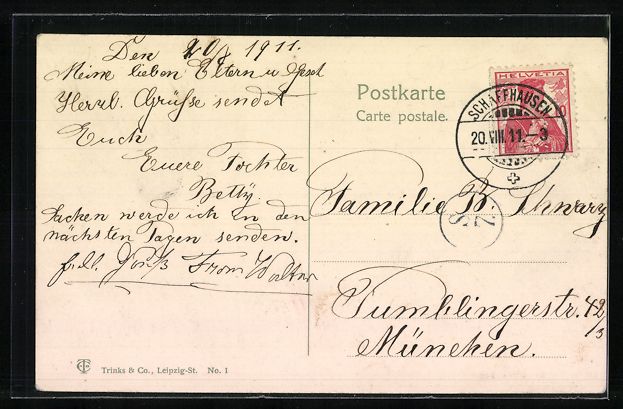 Den 20/8 1911.
Meine lieben Eltern u. Gesch
Herzl. Grüsse sendet
Euch
Euere Tochter
Betty
Sachen werde ich in den
nächsten Tagen senden.
From Walter
Postkarte
Carte postale.
HELVETIA
SCHAFFHAUSEN
20.VIII.11.-3
Familie B. Schwarz
Tumblingerstr. 42/3
München.
Trinks & Co., Leipzig-St. No. 1